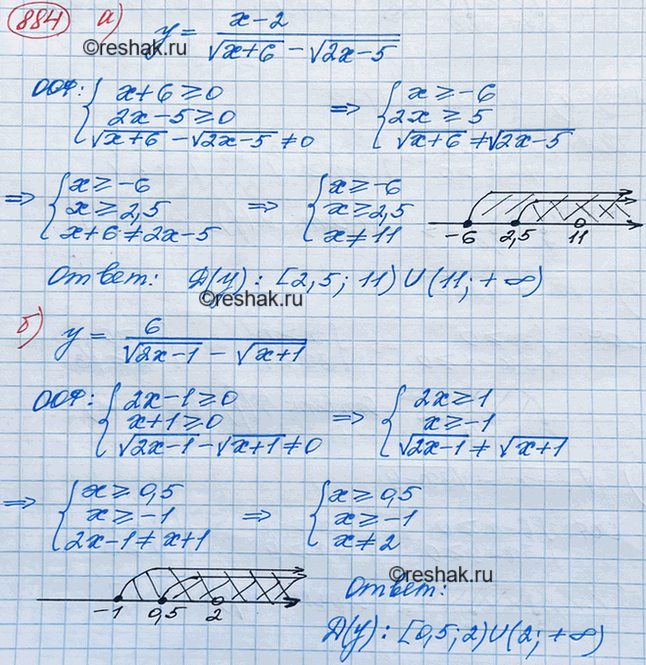 884 а) y = (x-2)/(√(x+6) - √(2x-5))
©reshak.ru
ООФ: { x+6 ≥ 0 ⇒ { x ≥ -6
2x-5 ≥ 0 2x ≥ 5
√(x+6) - √(2x-5) ≠ 0 √(x+6) ≠ √(2x-5)
⇒ { x ≥ -6 ⇒ { x ≥ -6
x ≥ 2,5 x ≥ 2,5
x+6 ≠ 2x-5 x ≠ 11
-6 2,5 11
Ответ: D(y): [2,5; 11) ∪ (11; +∞)
©reshak.ru
б) y = 6/(√(2x-1) - √(x+1))
ООФ: { 2x-1 ≥ 0 ⇒ { 2x ≥ 1
x+1 ≥ 0 x ≥ -1
√(2x-1) - √(x+1) ≠ 0 √(2x-1) ≠ √(x+1)
⇒ { x ≥ 0,5 ⇒ { x ≥ 0,5
x ≥ -1 x ≥ -1
2x-1 ≠ x+1 x ≠ 2
-1 0,5 2
©reshak.ru
Ответ:
D(y): [0,5; 2) ∪ (2; +∞)